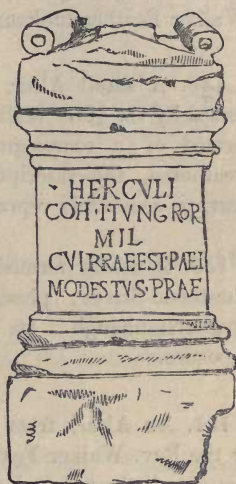 HERCVLI
COH·I·TVNGROR
MIL
CVI PRAEEST·P·AEL
MODESTVS·PRAE